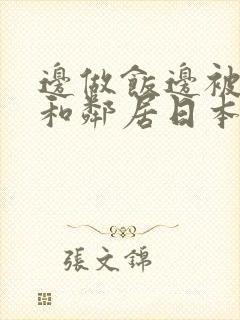 邊做飯邊被
和鄰居日本
張文錦